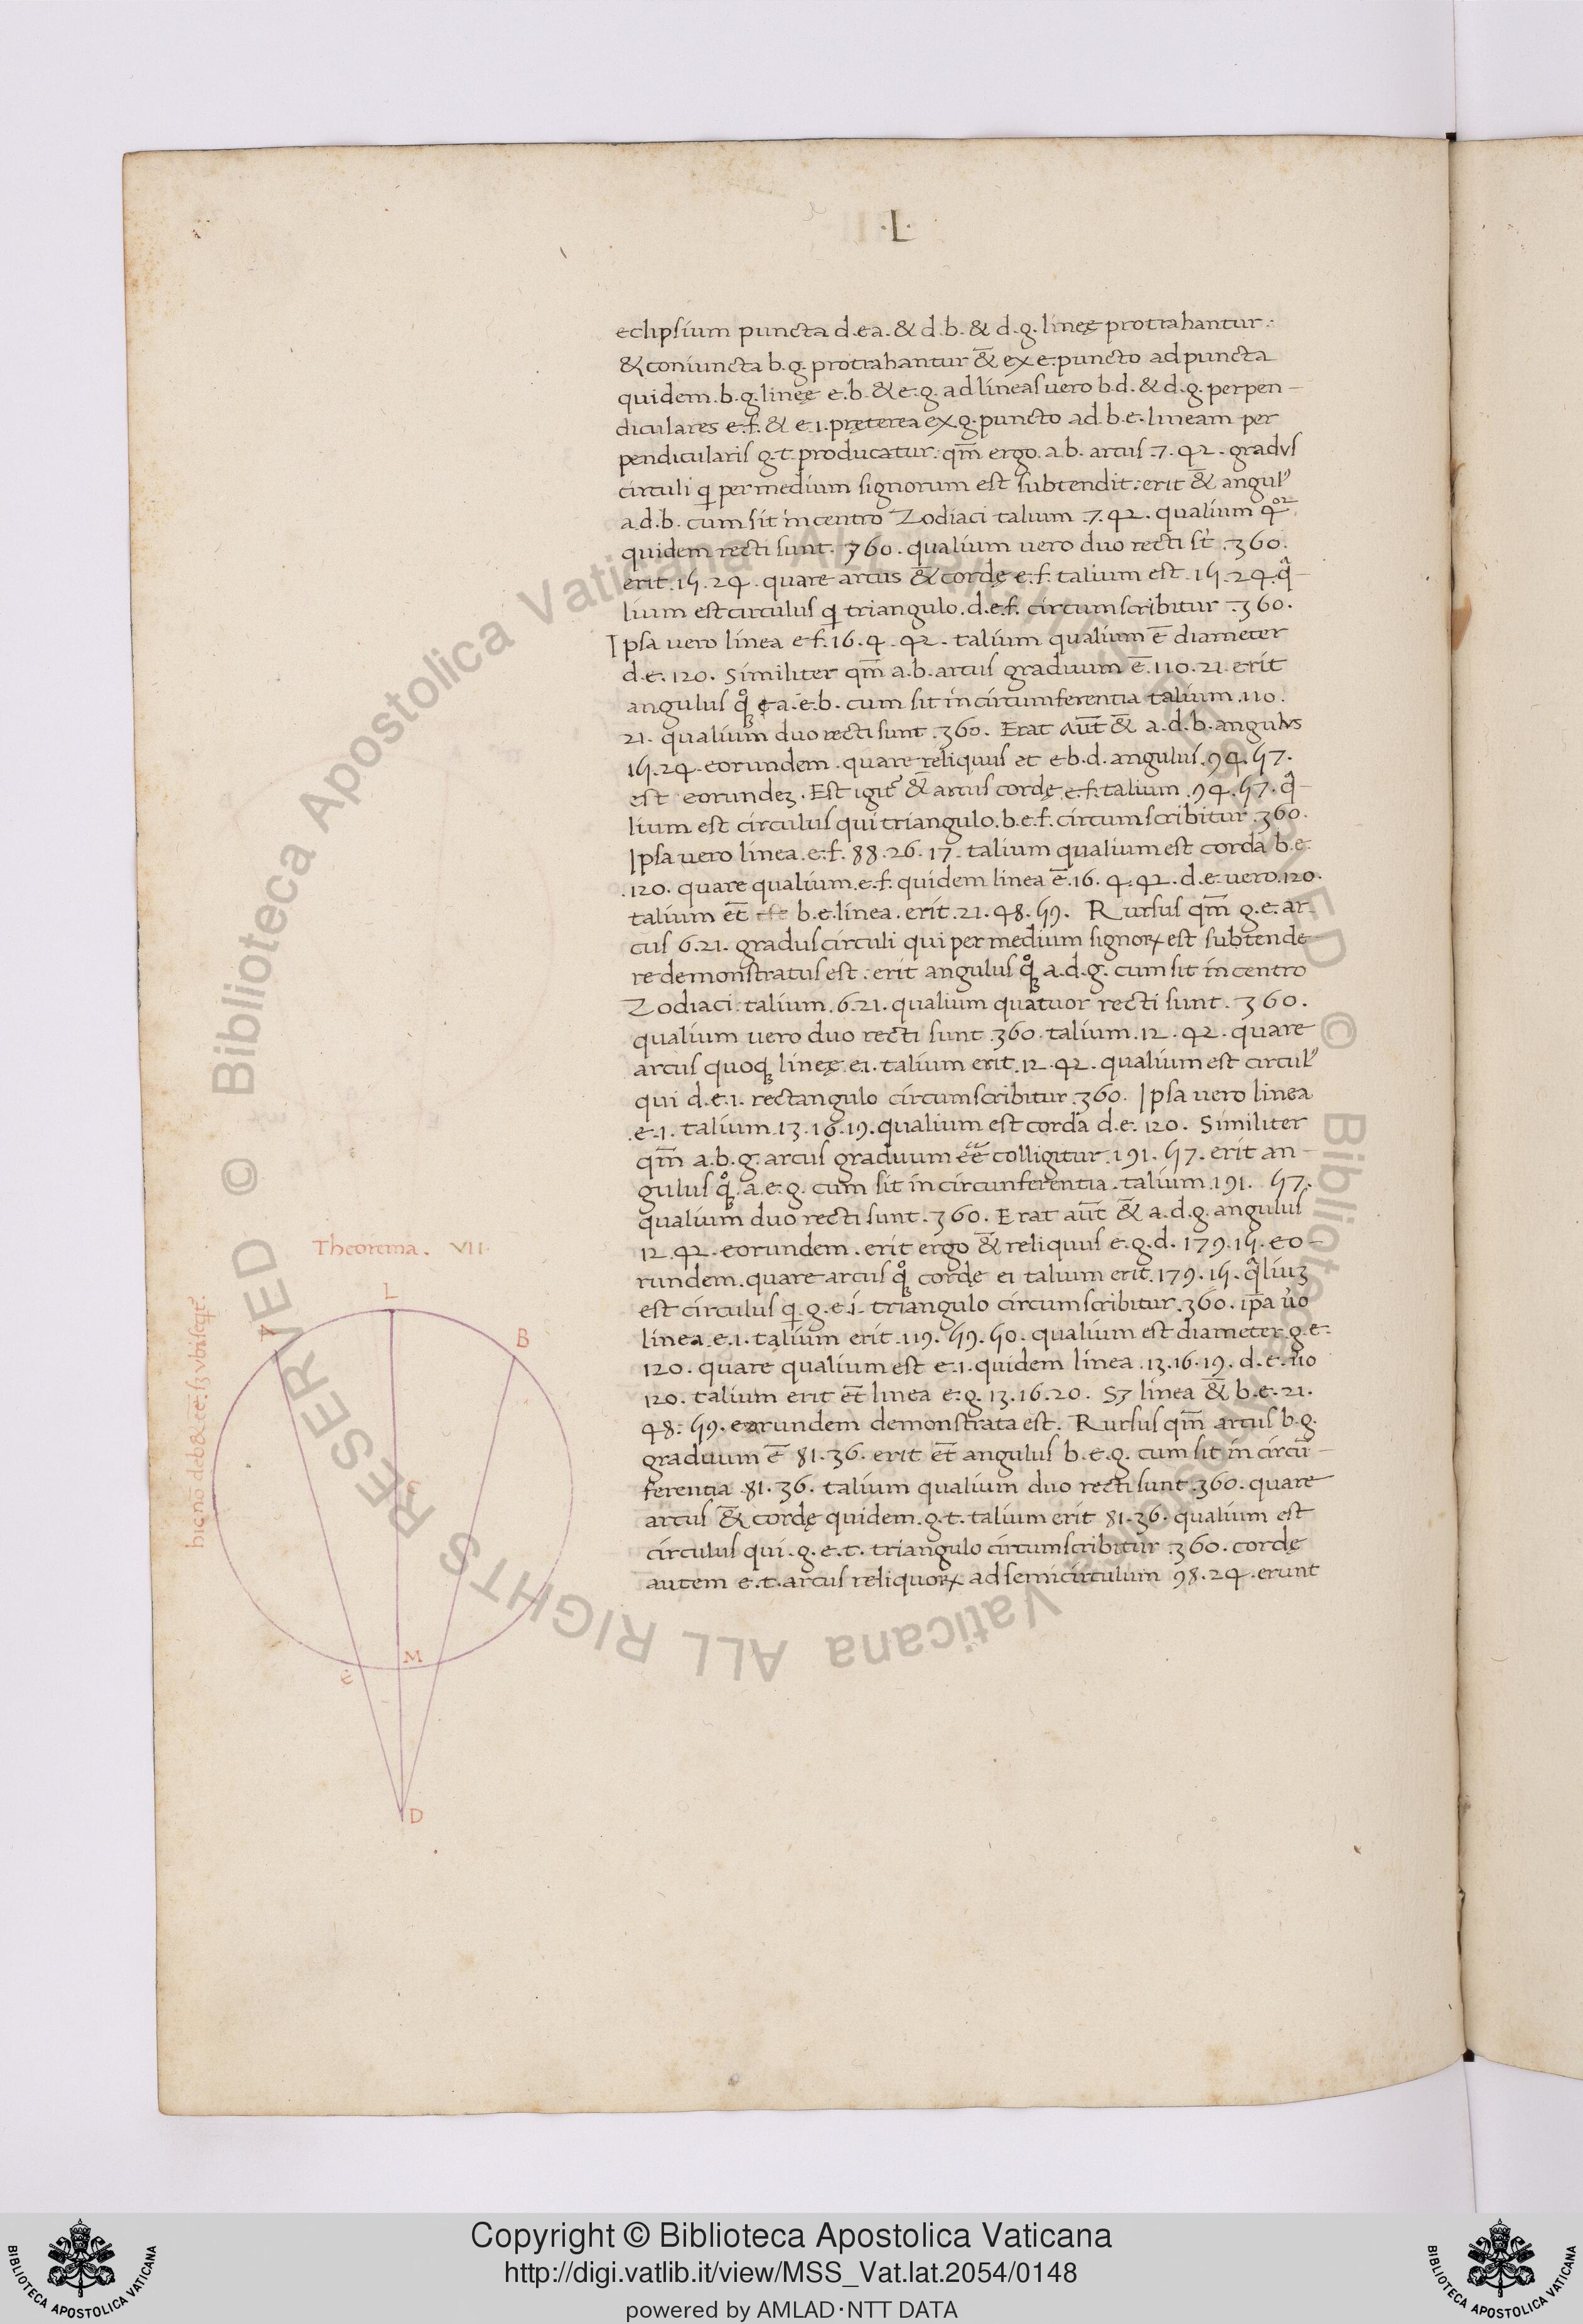 ·L·
eclipsium puncta d.ea. & d.b. & d.g. lineę protrahantur:
& coniuncta b.g. protrahantur &̄ ex e. puncto ad puncta
quidem .b.g. lineę e.b. & e.g. ad lineas vero b.d. & d.g. perpen-
diculares e.f. & e.i. pręterea ex g. puncto ad .b.e. lineam per
pendicularis g.t. producatur. qm̄ ergo .a.b. arcus .7.42. gradus
circuli q per medium signorum est subtendit: erit &̄ angul᾿
a.d.b. cum sit in centro Zodiaci talium .7.42. qualium
quidem recti sunt. 360. qualium uero duo recti st̄ .360.
erit .15.24. quare arcus &̄ cordę e.f. talium est .15.24. q̂-
lium est circulus q triangulo .d.e.f. circumscribitur .360.
Ipsa uero linea e.f. 16.4.42. talium qualium ē diameter
d.e. 120. Similiter qm̄ a.b. arcus graduum ē .110.21. erit
angulus a.e.b. cum sit in circumferentia talium .110.
21. qualium duo recti sunt .360. Erat aut̄ &̄ a.d.b. angulus
15.24. eorundem. quare reliquus et e.b.d. angulus .94.57.
est eorundeʒ. Est igit &̄ arcus cordę e.f. talium .94.57. q̂-
lium est circulus qui triangulo .b.e.f. circumscribitur .360.
Ipsa uero linea .e.f. 88.26.17. talium qualium est corda b.e.
.120. quare qualium .e.f. quidem linea ē .16.4.42. d.e. uero .120.
talium et̄ b.e. linea. erit .21.48.59. Rursus qm̄ g.e. ar-
cus 6.21. gradus circuli qui per medium signoꝝ est subtende
re demonstratus est: erit angulus a.d.g. cum sit in centro
Zodiaci: talium .6.21. qualium quatuor recti sunt. 360.
qualium uero duo recti sunt .360. talium .12.42. quare
arcus quoqꝫ lineę e.i. talium erit .12.42. qualium est circul᾿
qui d.e.i. rectangulo circumscribitur .360. Ipsa uero linea
.e.i. talium .13.16.19. qualium est corda d.e. 120. Similiter
qm̄ a.b.g. arcus graduum ēē colligitur .191.57. erit an-
gulus a.e.g. cum sit in circunferentia. talium .191. 57.
qualium duo recti sunt .360. Erat aut̄ &̄ a.d.g. angulus
12.42. eorundem. erit ergo &̄ reliquus e.g.d. 179.15. eo-
rundem. quare arcus cordę ei talium erit .179.15. q̂liuʒ
est circulus q g.e.i. triangulo circumscribitur .360. ip̄a u̇o
linea .e.i. talium erit .119.59.50. qualium est diameter g.e.
120. quare qualium est e.i. quidem linea .13.16.19. d.e. u̇o
120. talium erit et̄ linea e.g. 13.16.20. Sʒ linea &̄ b.e. 21.
48.59. earundem demonstrata est. Rursus qm̄ arcus b.g.
graduum ē 81.36. erit et̄ angulus b.e.g. cum sit in circū-
ferentia .81.36. talium qualium duo recti sunt .360. quare
arcus &̄ cordę quidem .g.t. talium erit 81.36. qualium est
circulus qui .g.e.t. triangulo circumscribitur .360. cordę
autem e.t. arcus reliquoꝝ ad semicirculum 98.24. erunt
Theorema. VII.
L
A
B
E
M
D
Copyright © Biblioteca Apostolica Vaticana
http://digi.vatlib.it/view/MSS_Vat.lat.2054/0148
powered by AMLAD·NTT DATA
BIBLIOTECA APOSTOLICA VATICANA
BIBLIOTECA APOSTOLICA VATICANA
© Biblioteca Apostolica Vaticana ALL RIGHTS RESERVED
© Biblioteca Apostolica Vaticana ALL RIGHTS RESERVED